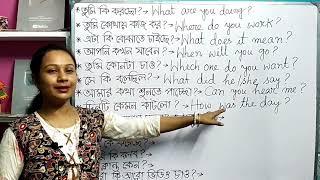 * তুমি কি করছো? → What are you doing?
* তুমি কোথায় কাজ কর? → Where do you work?
* এটা কি বোঝাতে চাইছে? → What does it mean?
* আপনি কখন যাবেন? → When will you go?
* তুমি কোনটা চাও? → Which one do you want?
* সে কি বলেছিল? → What did he/she say?
* আমার কথা শুনতে পাচ্ছো? → Can you hear me?
কেমন কাটলো? → How was the day?
কি করব? →
কি বলব? →
কেন? →
কি আরো ভিডিও চাও? →